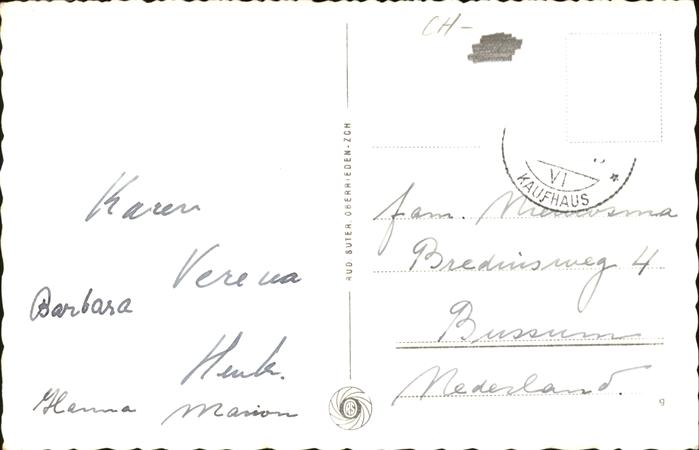 CH-
Karen
Verena
Barbara
Henk.
Hanna Marion
RUD. SUTER, OBERRIEDEN-ZCH
VI
KAUFHAUS
fam.
Bredinsweg 4
Bussum
Nederland.
9